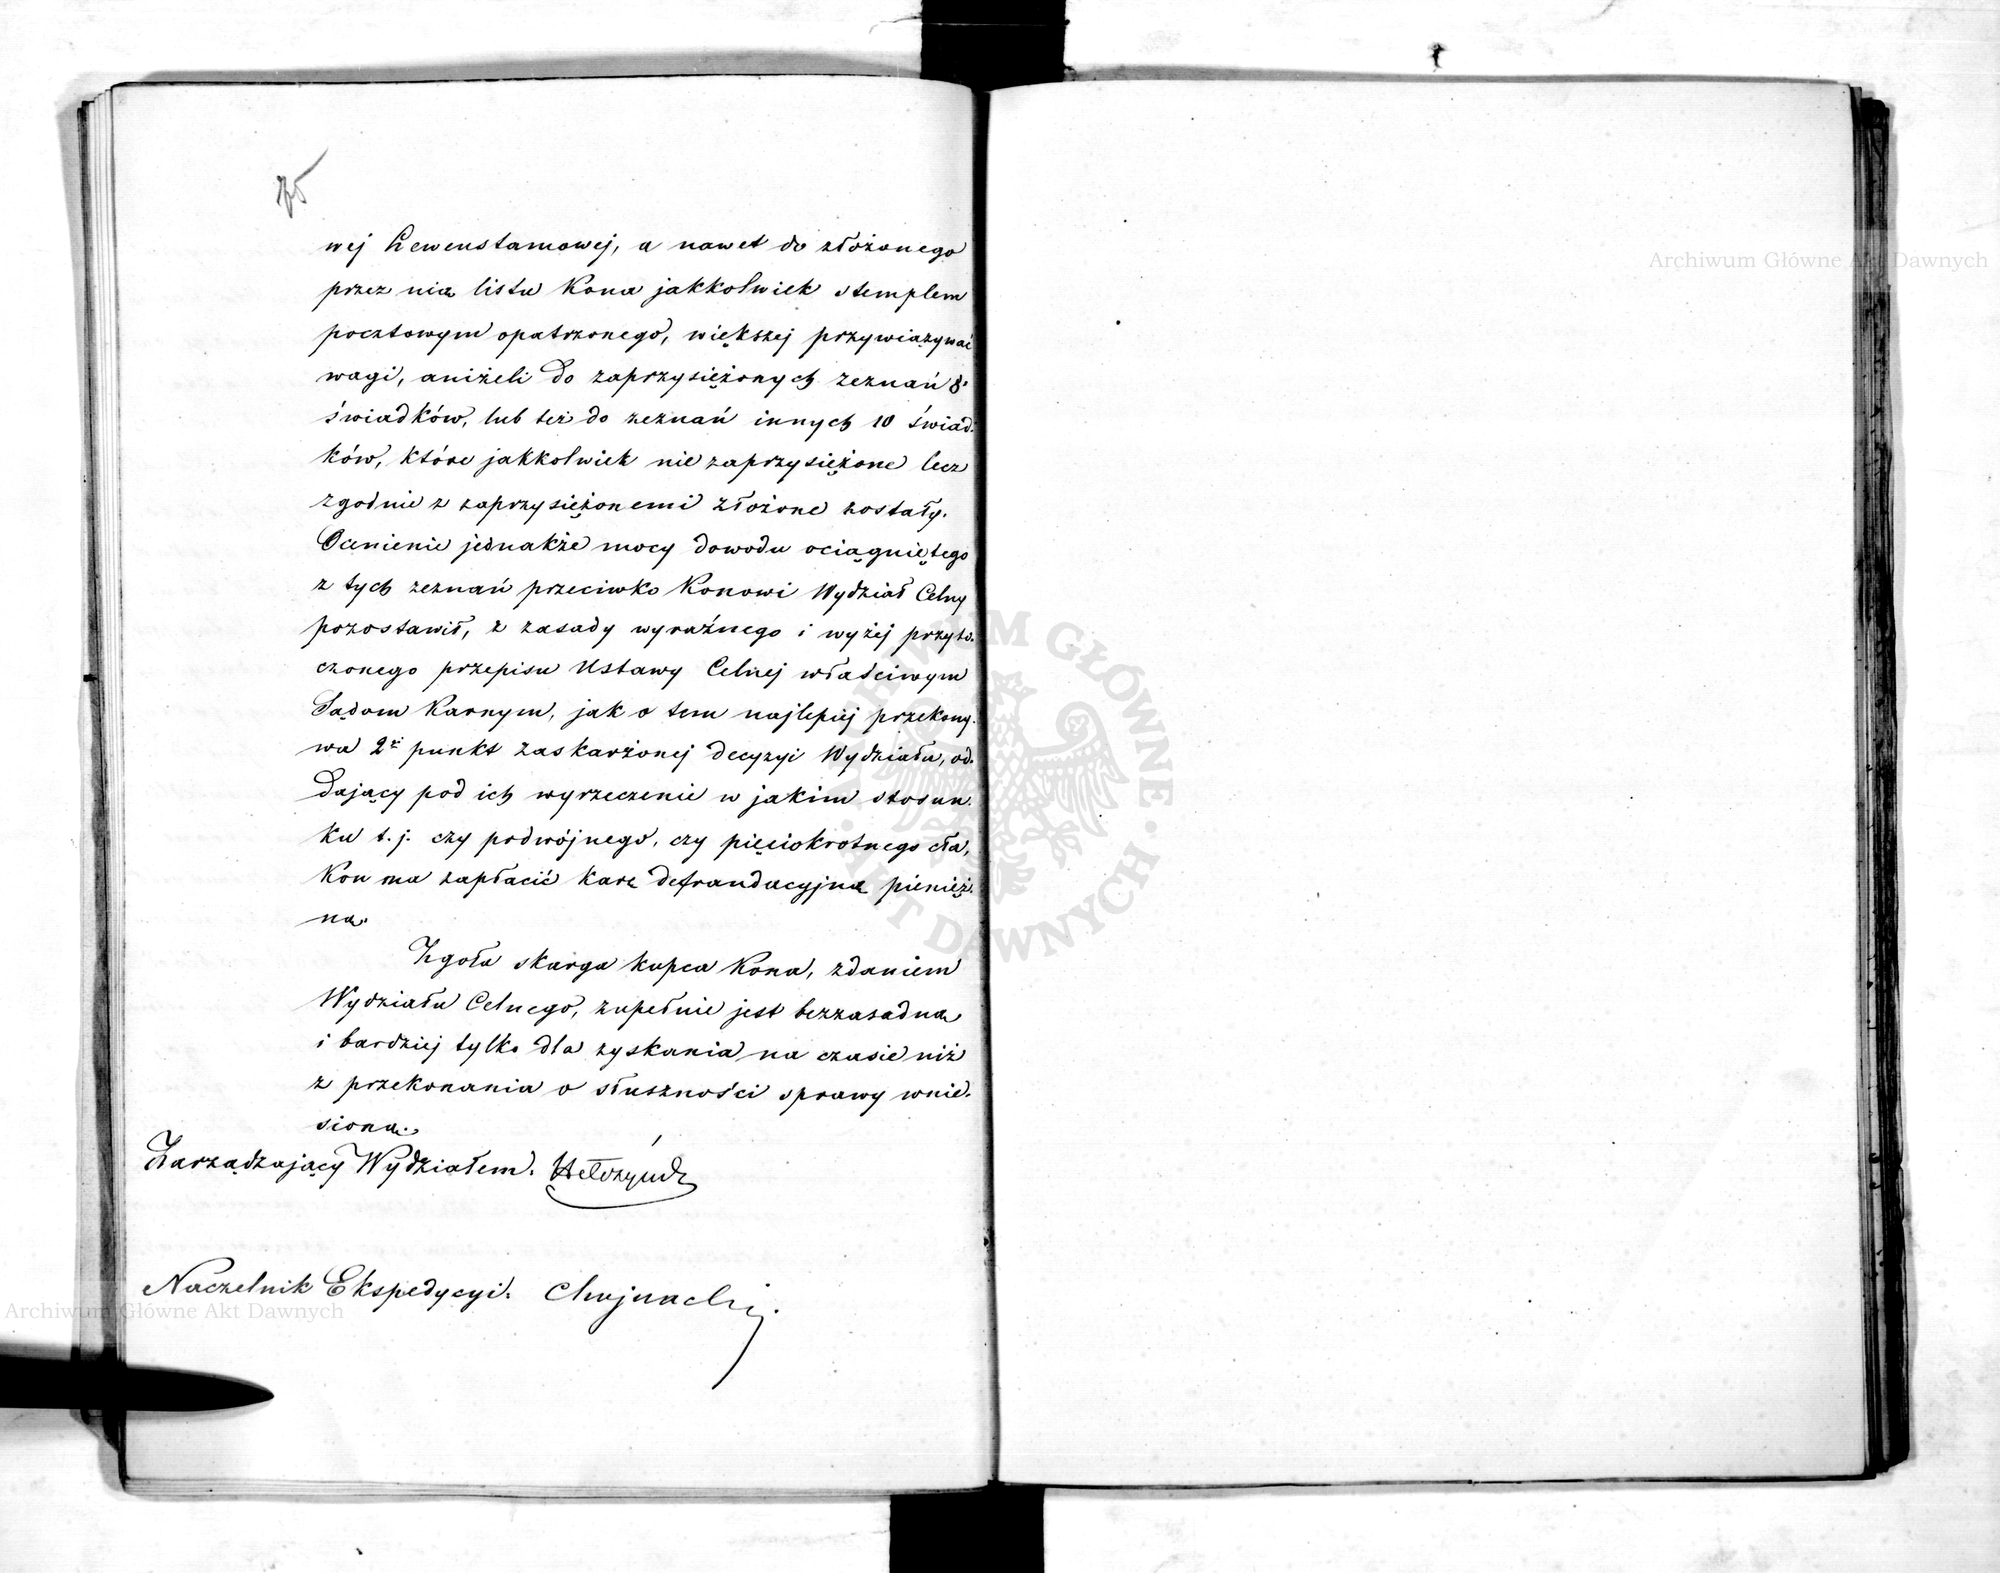 75
wej Lewenstamowej, a nawet do złożonego
przez nią listu Kona jakkolwiek stemplem
pocztowym opatrzonego, większej przywiązywać
wagi, aniżeli do zaprzysiężonych zeznań 8.
świadków, lub też do zeznań innych 10 świad-
ków, które jakkolwiek nie zaprzysiężone lecz
zgodnie z zaprzysiężonemi złożone zostały.
Ocenienie jednakże mocy dowodu ociągniętego
z tych zeznań przeciwko Konowi Wydział Celny
pozostawił, z zasady wyraźnego i wyżej przyto-
czonego przepisu Ustawy Celnej właściwym
Sądom Karnym, jak o tem najlepiej przekony-
wa 2gi punkt zaskarżonej decyzyi Wydziału, od-
dający pod ich wyrzeczenie w jakim stosun-
ku t. j. czy podwójnego, czy pięciokrotnego cła,
Kon ma zapłacić karę defraudacyjną pienięż-
ną.
Zgoła skarga kupca Kona, zdaniem
Wydziału Celnego, zupełnie jest bezzasadną
i bardziej tylko dla zyskania na czasie niż
z przekonania o słuszności sprawy wnie-
sioną.
Zarządzający Wydziałem.
Naczelnik Ekspedycyi. Chojnacki.
Archiwum Główne Akt Dawnych
Archiwum Główne Akt Dawnych
ARCHIWUM GŁÓWNE · AKT DAWNYCH ·